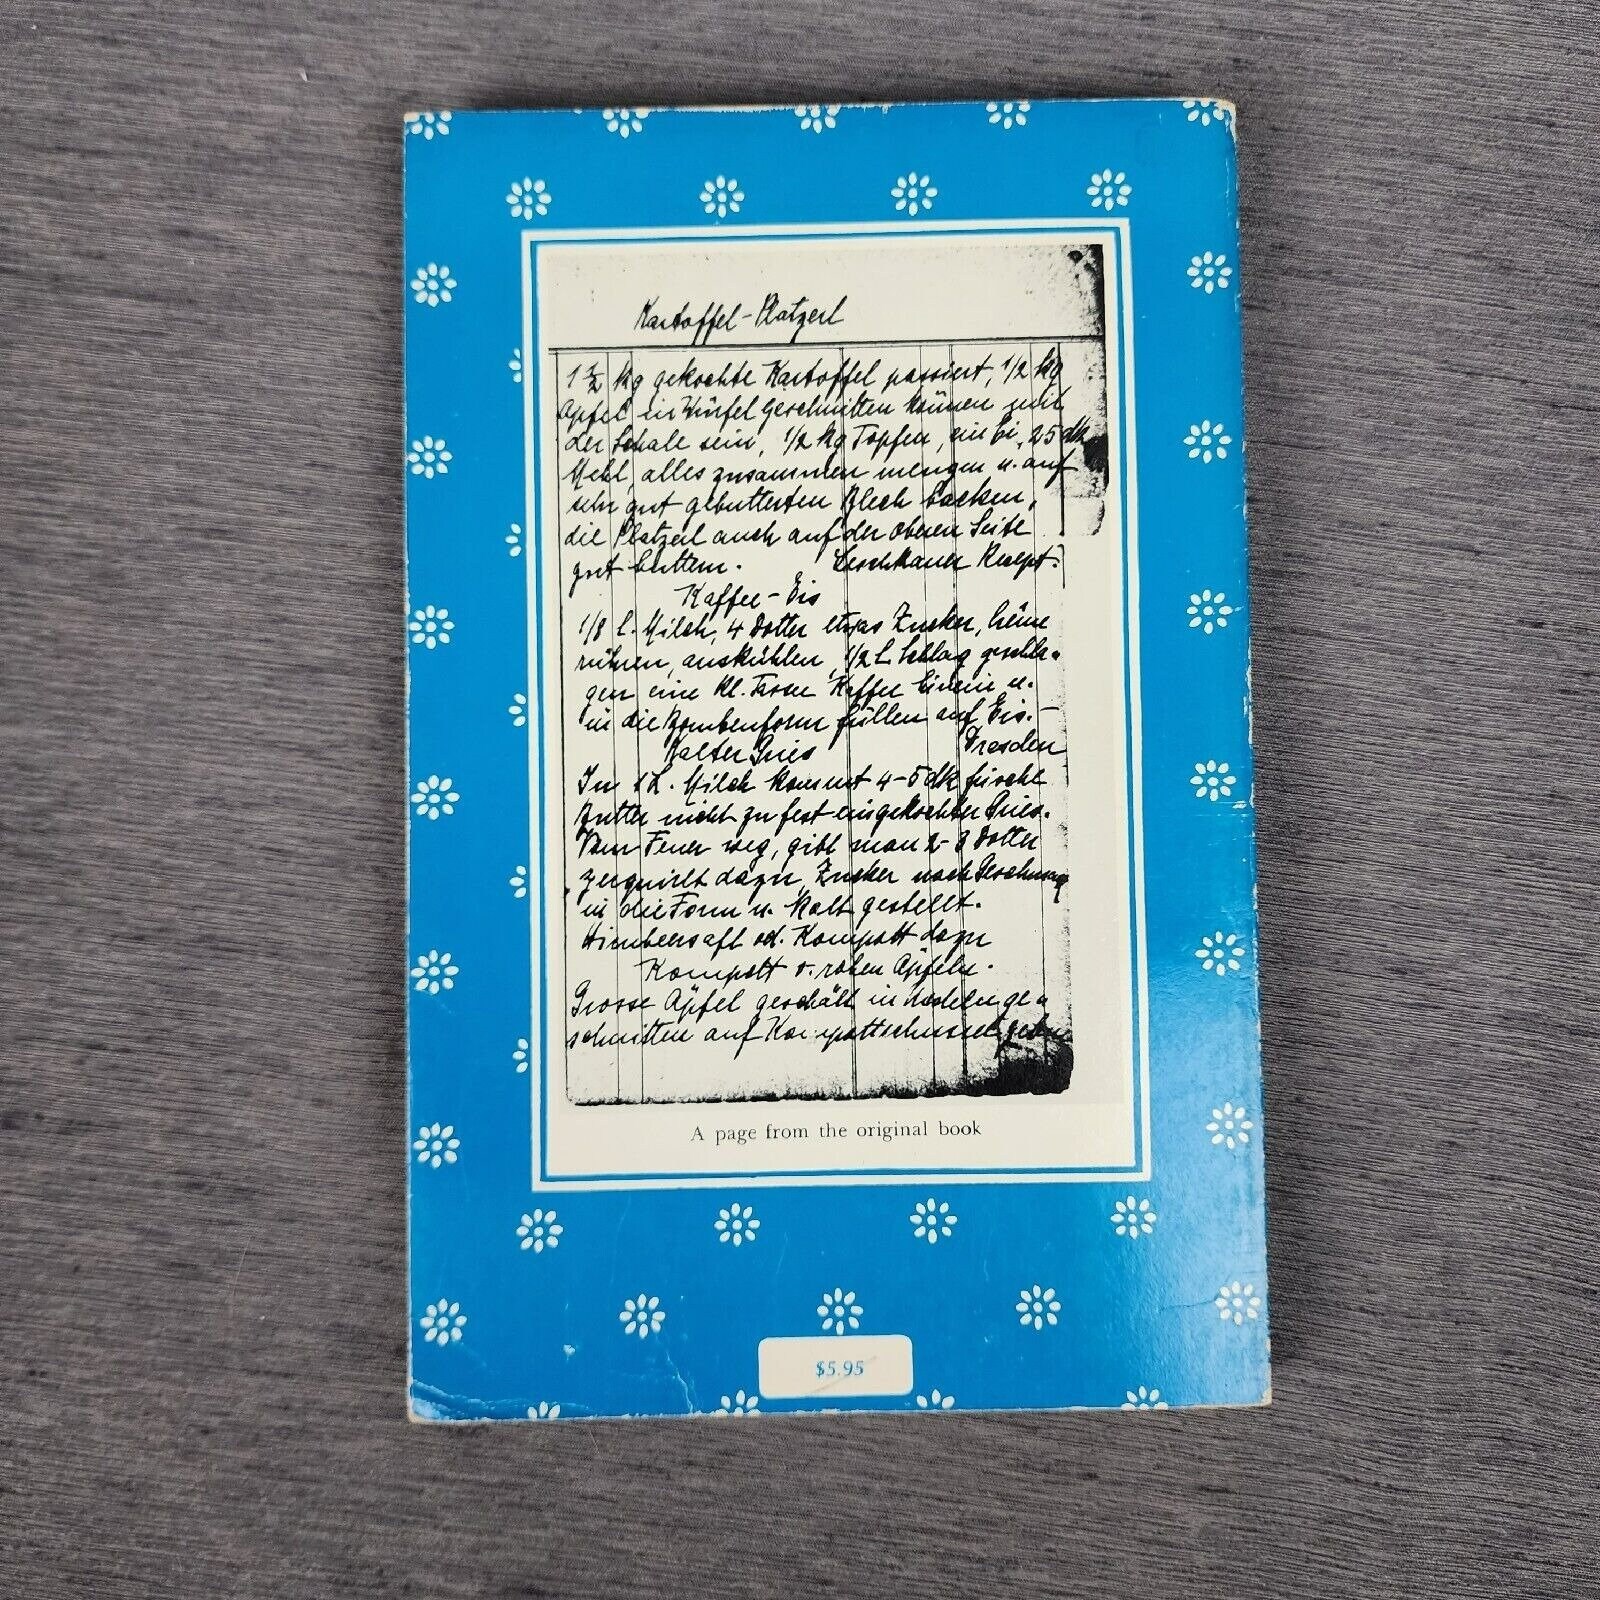 Kartoffel-Platzerl
1 1/2 kg gekochte Kartoffel passiert, 1/2 kg
Äpfel in Würfel geschnitten können mit
der Schale sein, 1/2 kg Topfen, ein Ei, 25 dk
Mehl, alles zusammen mengen u. auf
sehr gut gebutterten Blech backen,
die Platzerl auch auf der oberen Seite
gut buttern. Rezept.
Kaffee-Eis
1/8 L. Milch, 4 Dotter etwas Zucker,
rühren, auskühlen, 1/2 L Schlag geschla-
gen eine kl. Tasse Kaffee u.
in die Bombenform füllen auf Eis.-
Kalter Gries Dresden
In 1 L. Milch kommt 4-5 dk frische
Butter nicht zu fest eingekochter Gries.
Vom Feuer weg, gibt man 2-3 Dotter
zerquirlt dazu, Zucker nach Geschmack
in die Form u. kalt gestellt.
Himbeersaft od. Kompott dazu
Kompott v. rohen Äpfeln.
Grosse Äpfel geschält in ge-
schnitten auf Kompottschüssel geben
A page from the original book
$5.95